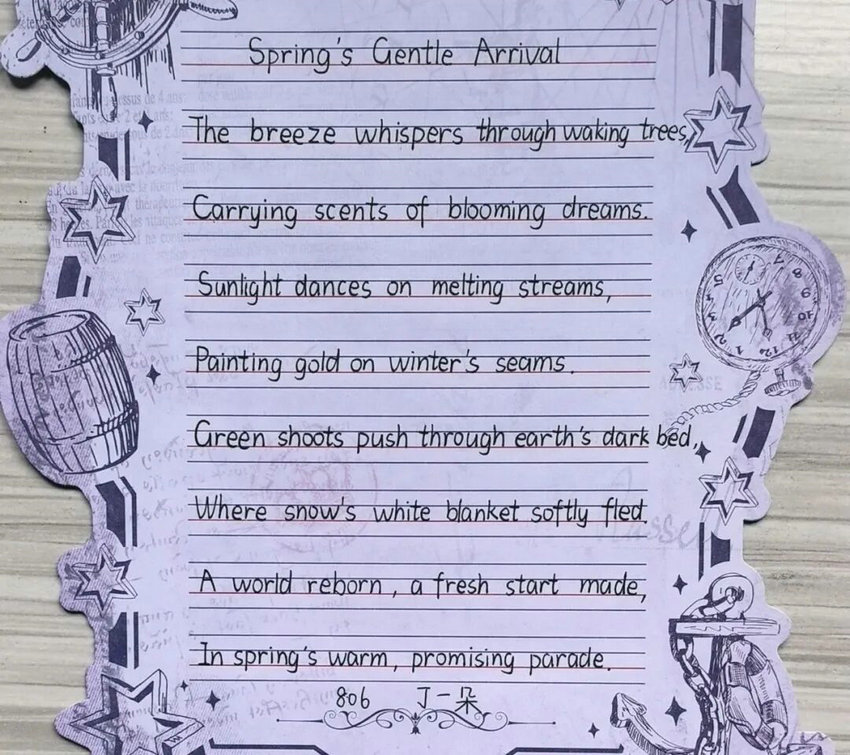 Spring's Gentle Arrival
The breeze whispers through waking trees,
Carrying scents of blooming dreams.
Sunlight dances on melting streams,
Painting gold on winter's seams.
Green shoots push through earth's dark bed,
Where snow's white blanket softly fled.
A world reborn, a fresh start made,
In spring's warm, promising parade.
806 丁一朵